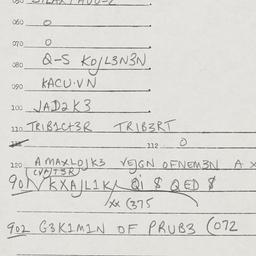 060 O
070 O
080 Q-S KOJL3N3N
090 KACU·VN
100 JAD2K3
110 TRIB1C+3R TRIB3RT
112 O
120 AMAXLOJK3 VEJGN OFNEM3N A X
901 KXAJL1K Qi $ QED $
XX (375
902 G3K1M1N OF PRUB3 (072